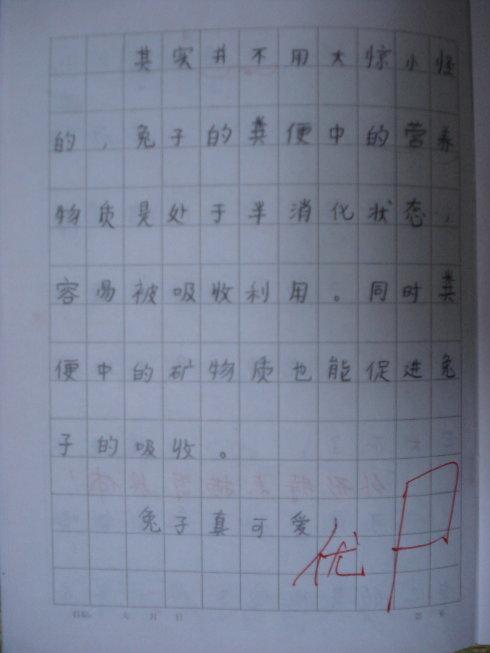 其实并不用大惊小怪
的，兔子的粪便中的营养
物质是处于半消化状态，
容易被吸收利用。同时粪
便中的矿物质也能促进兔
子的吸收。
兔子真可爱！
优